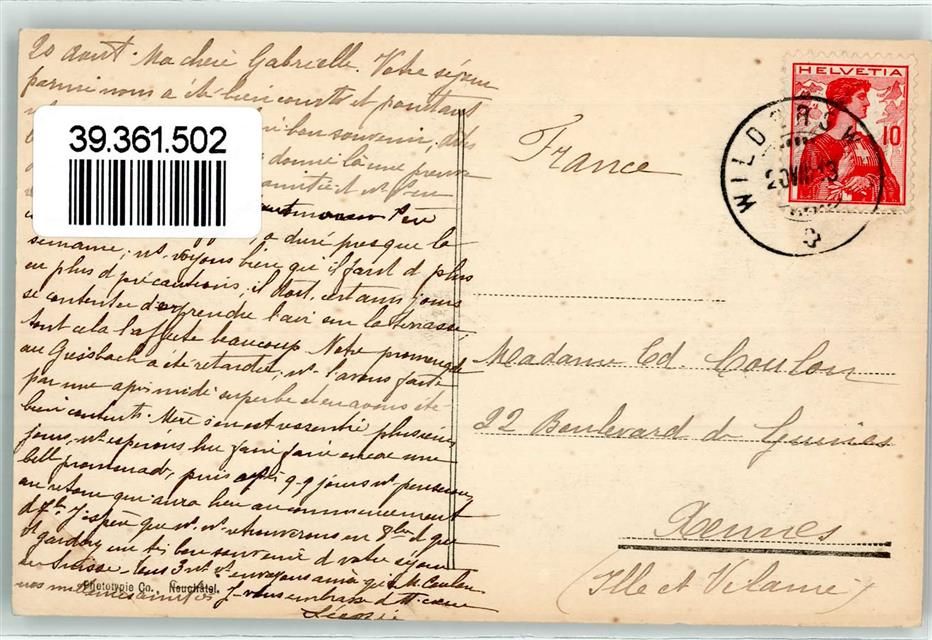 20 août. Ma chère Gabrielle. Votre séjour
parmi nous a été bien courts et pourtant
bon souvenir,
donne là une preuve
l'en
a duré presque la
semaine; ns. voyons bien qu'il faut d plus
en plus d précautions; il doit, certains jours
se contenter d prendre l'air sur la terrasse,
tout cela l'affecte beaucoup. Notre promenade
au Giessbach a été retardée, ns. l'avons faite
par une après midi superbe et en avons été
bien contents. Mère s'en est ressentie plusieurs
jours, ns. espérons lui faire faire encore une
belle promenade, puis après q.q jours ns. penserons
au retour qui aura lieu au commencement
d 7bre. J'espère que ns. ns. retrouverons en 8bre et que
vs gardez un très bon souvenir d votre séjour
en Suisse. Tous 3 ns. vs. envoyons ainsi qu'à M. Coulon
nos meilleures amitiés je vous embrasse d tt cœur
39.361.502
Phototypie Co., Neuchâtel.
HELVETIA
10
WILD
20 VIII 13
France
Madame Ed. Coulon
22 Boulevard d Guines
Rennes
(Ille et Vilaine)